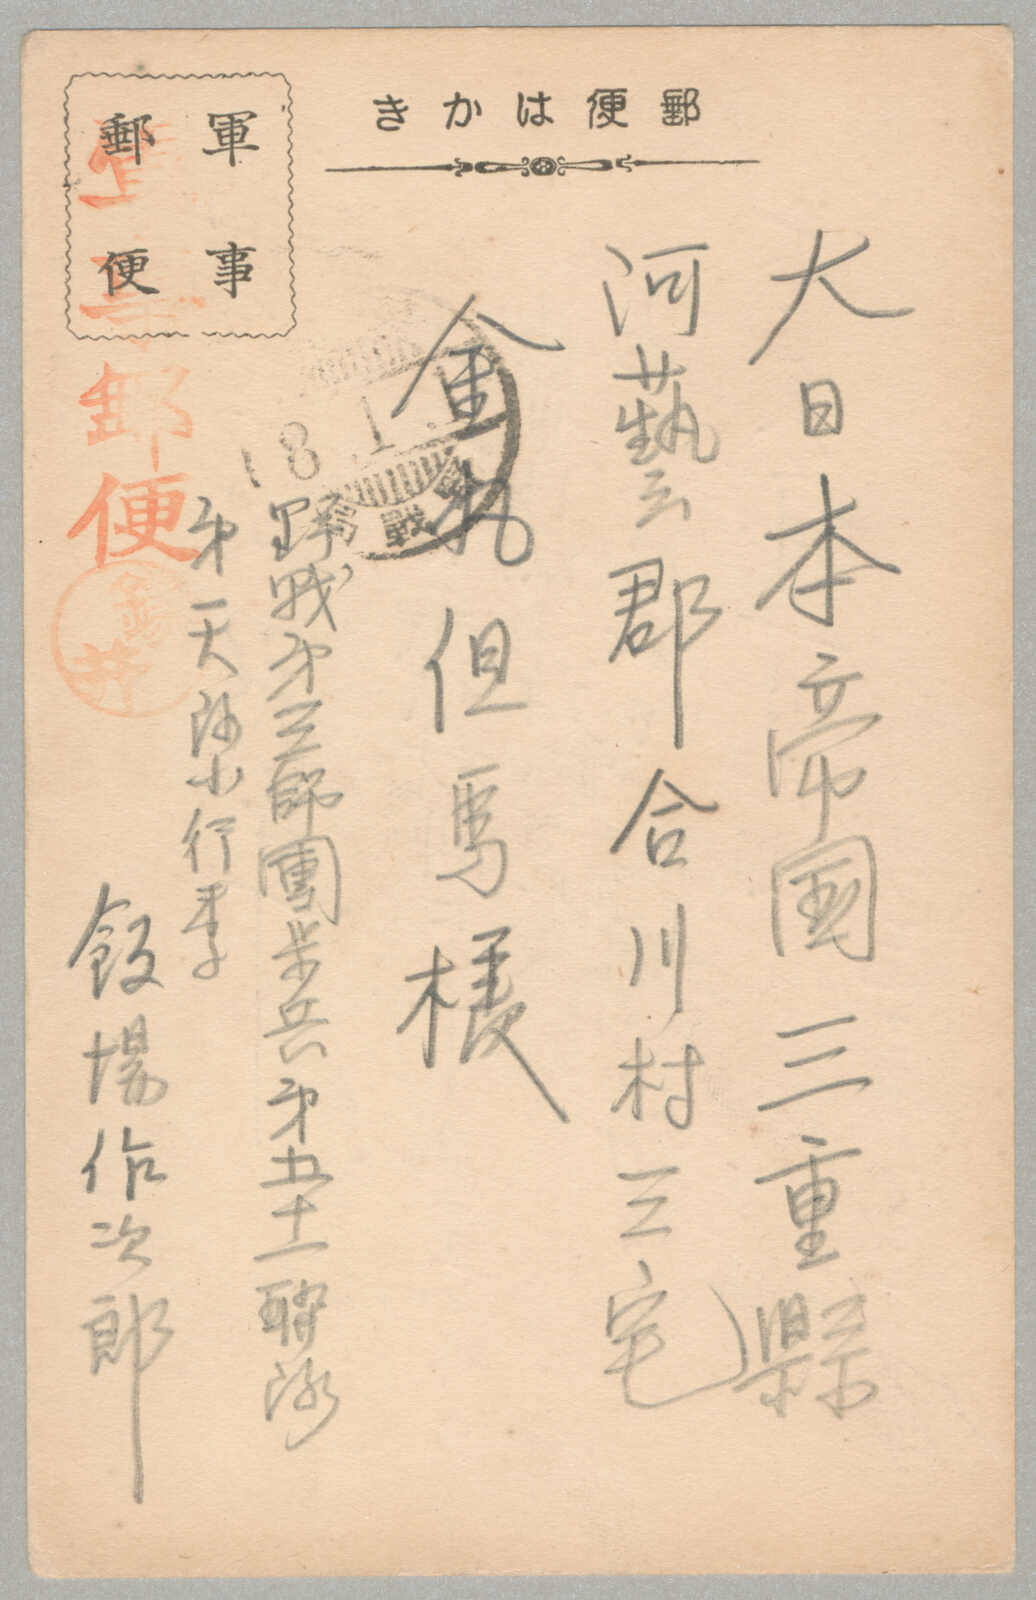 郵便はかき
軍事
郵便
軍事郵便
大日本帝国三重縣
河藝郡合川村三宅
但馬様
野戦第三師團歩兵第五十一聯隊
第一大隊小行李
飯場作次郎
井
8.1